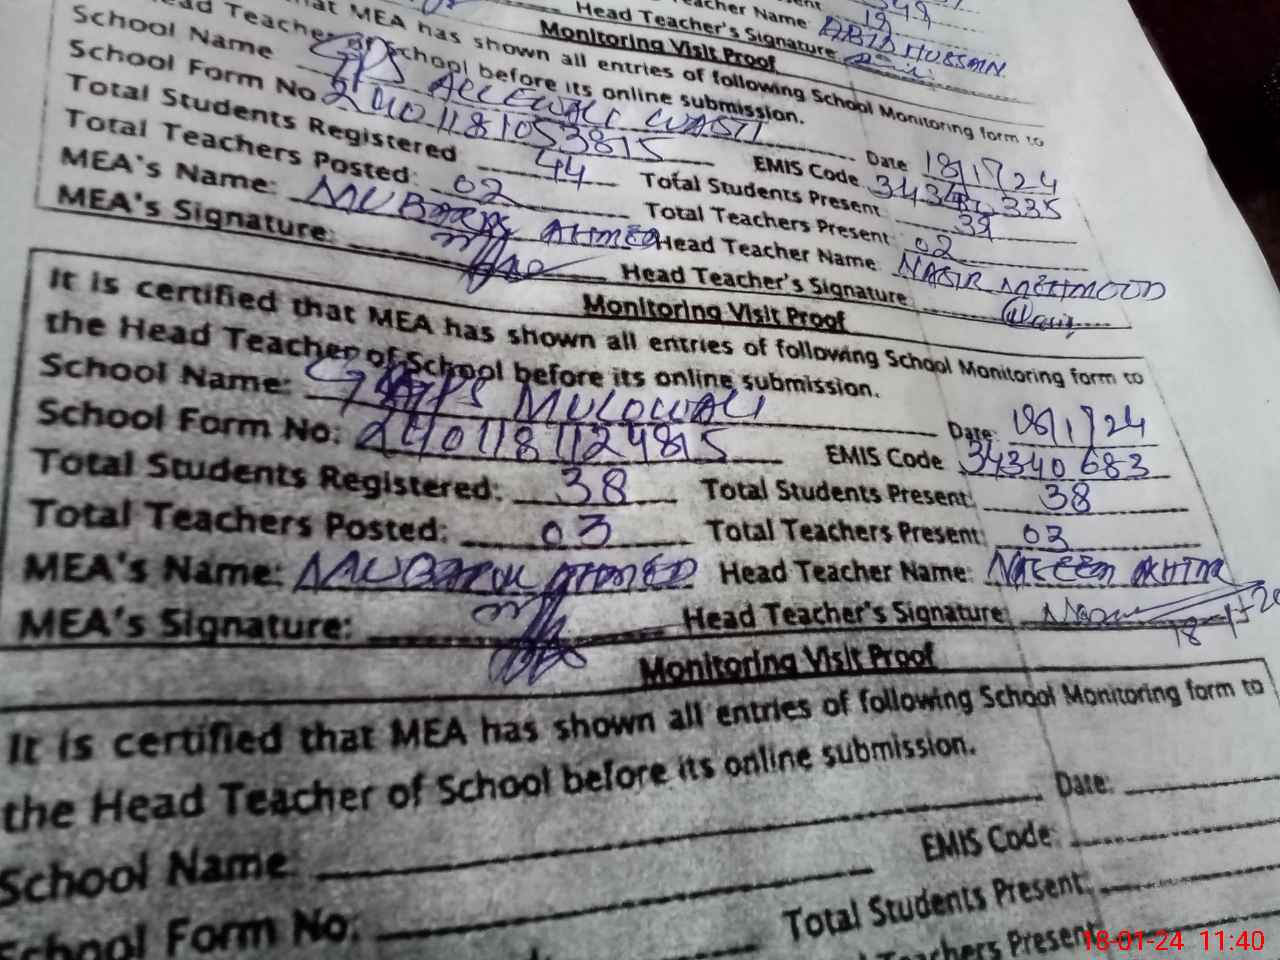 Teacher Name: ABID HUSSAIN
Head Teacher's Signature:
Monitoring Visit Proof
that MEA has shown all entries of following School Monitoring form to
Head Teacher of School before its online submission.
School Name GPS ALLEWALI WASTI Date: 18/1/24
School Form No. 2401181053815 EMIS Code
Total Students Registered 44 Total Students Present: 39
Total Teachers Posted: 02 Total Teachers Present: 02
MEA's Name: MUBARAK AHMED Head Teacher Name: NASIR MEHMOOD
MEA's Signature: Head Teacher's Signature:
Monitoring Visit Proof
It is certified that MEA has shown all entries of following School Monitoring form to
the Head Teacher of School before its online submission.
School Name: MULOWALI Date: 18/1/24
School Form No: 2401181124815 EMIS Code 34340683
Total Students Registered: 38 Total Students Present: 38
Total Teachers Posted: 03 Total Teachers Present: 03
MEA's Name: MUBARAK AHMED Head Teacher Name: NASEEM AKHTAR
MEA's Signature: Head Teacher's Signature:
Monitoring Visit Proof
It is certified that MEA has shown all entries of following School Monitoring form to
the Head Teacher of School before its online submission.
School Name Date:
School Form No: EMIS Code:
Total Students Present:
Teachers Present:
18-01-24 11:40